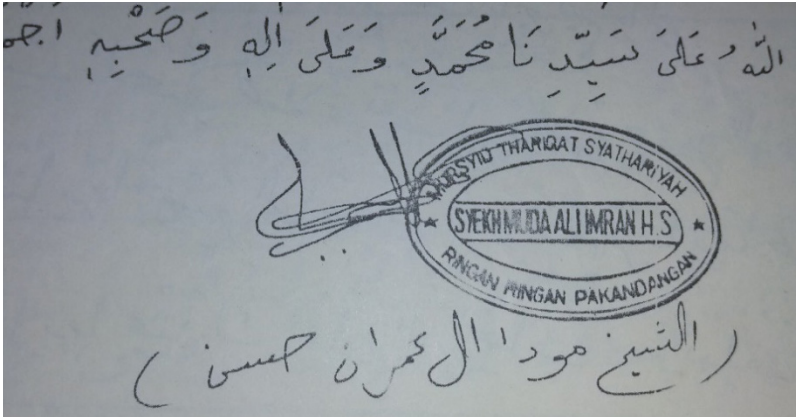 الله وعلى سَيِّدِ نَا مُحَمَّدٍ وَعَلَى الِهِ وَصَحْبِهِ
MURSYID THARIQAT SYATHARIYAH
SYEKH MUDA ALI IMRAN H.S
RINGAN RINGAN PAKANDANGAN
(الشيخ مودا ال عمران حسن)